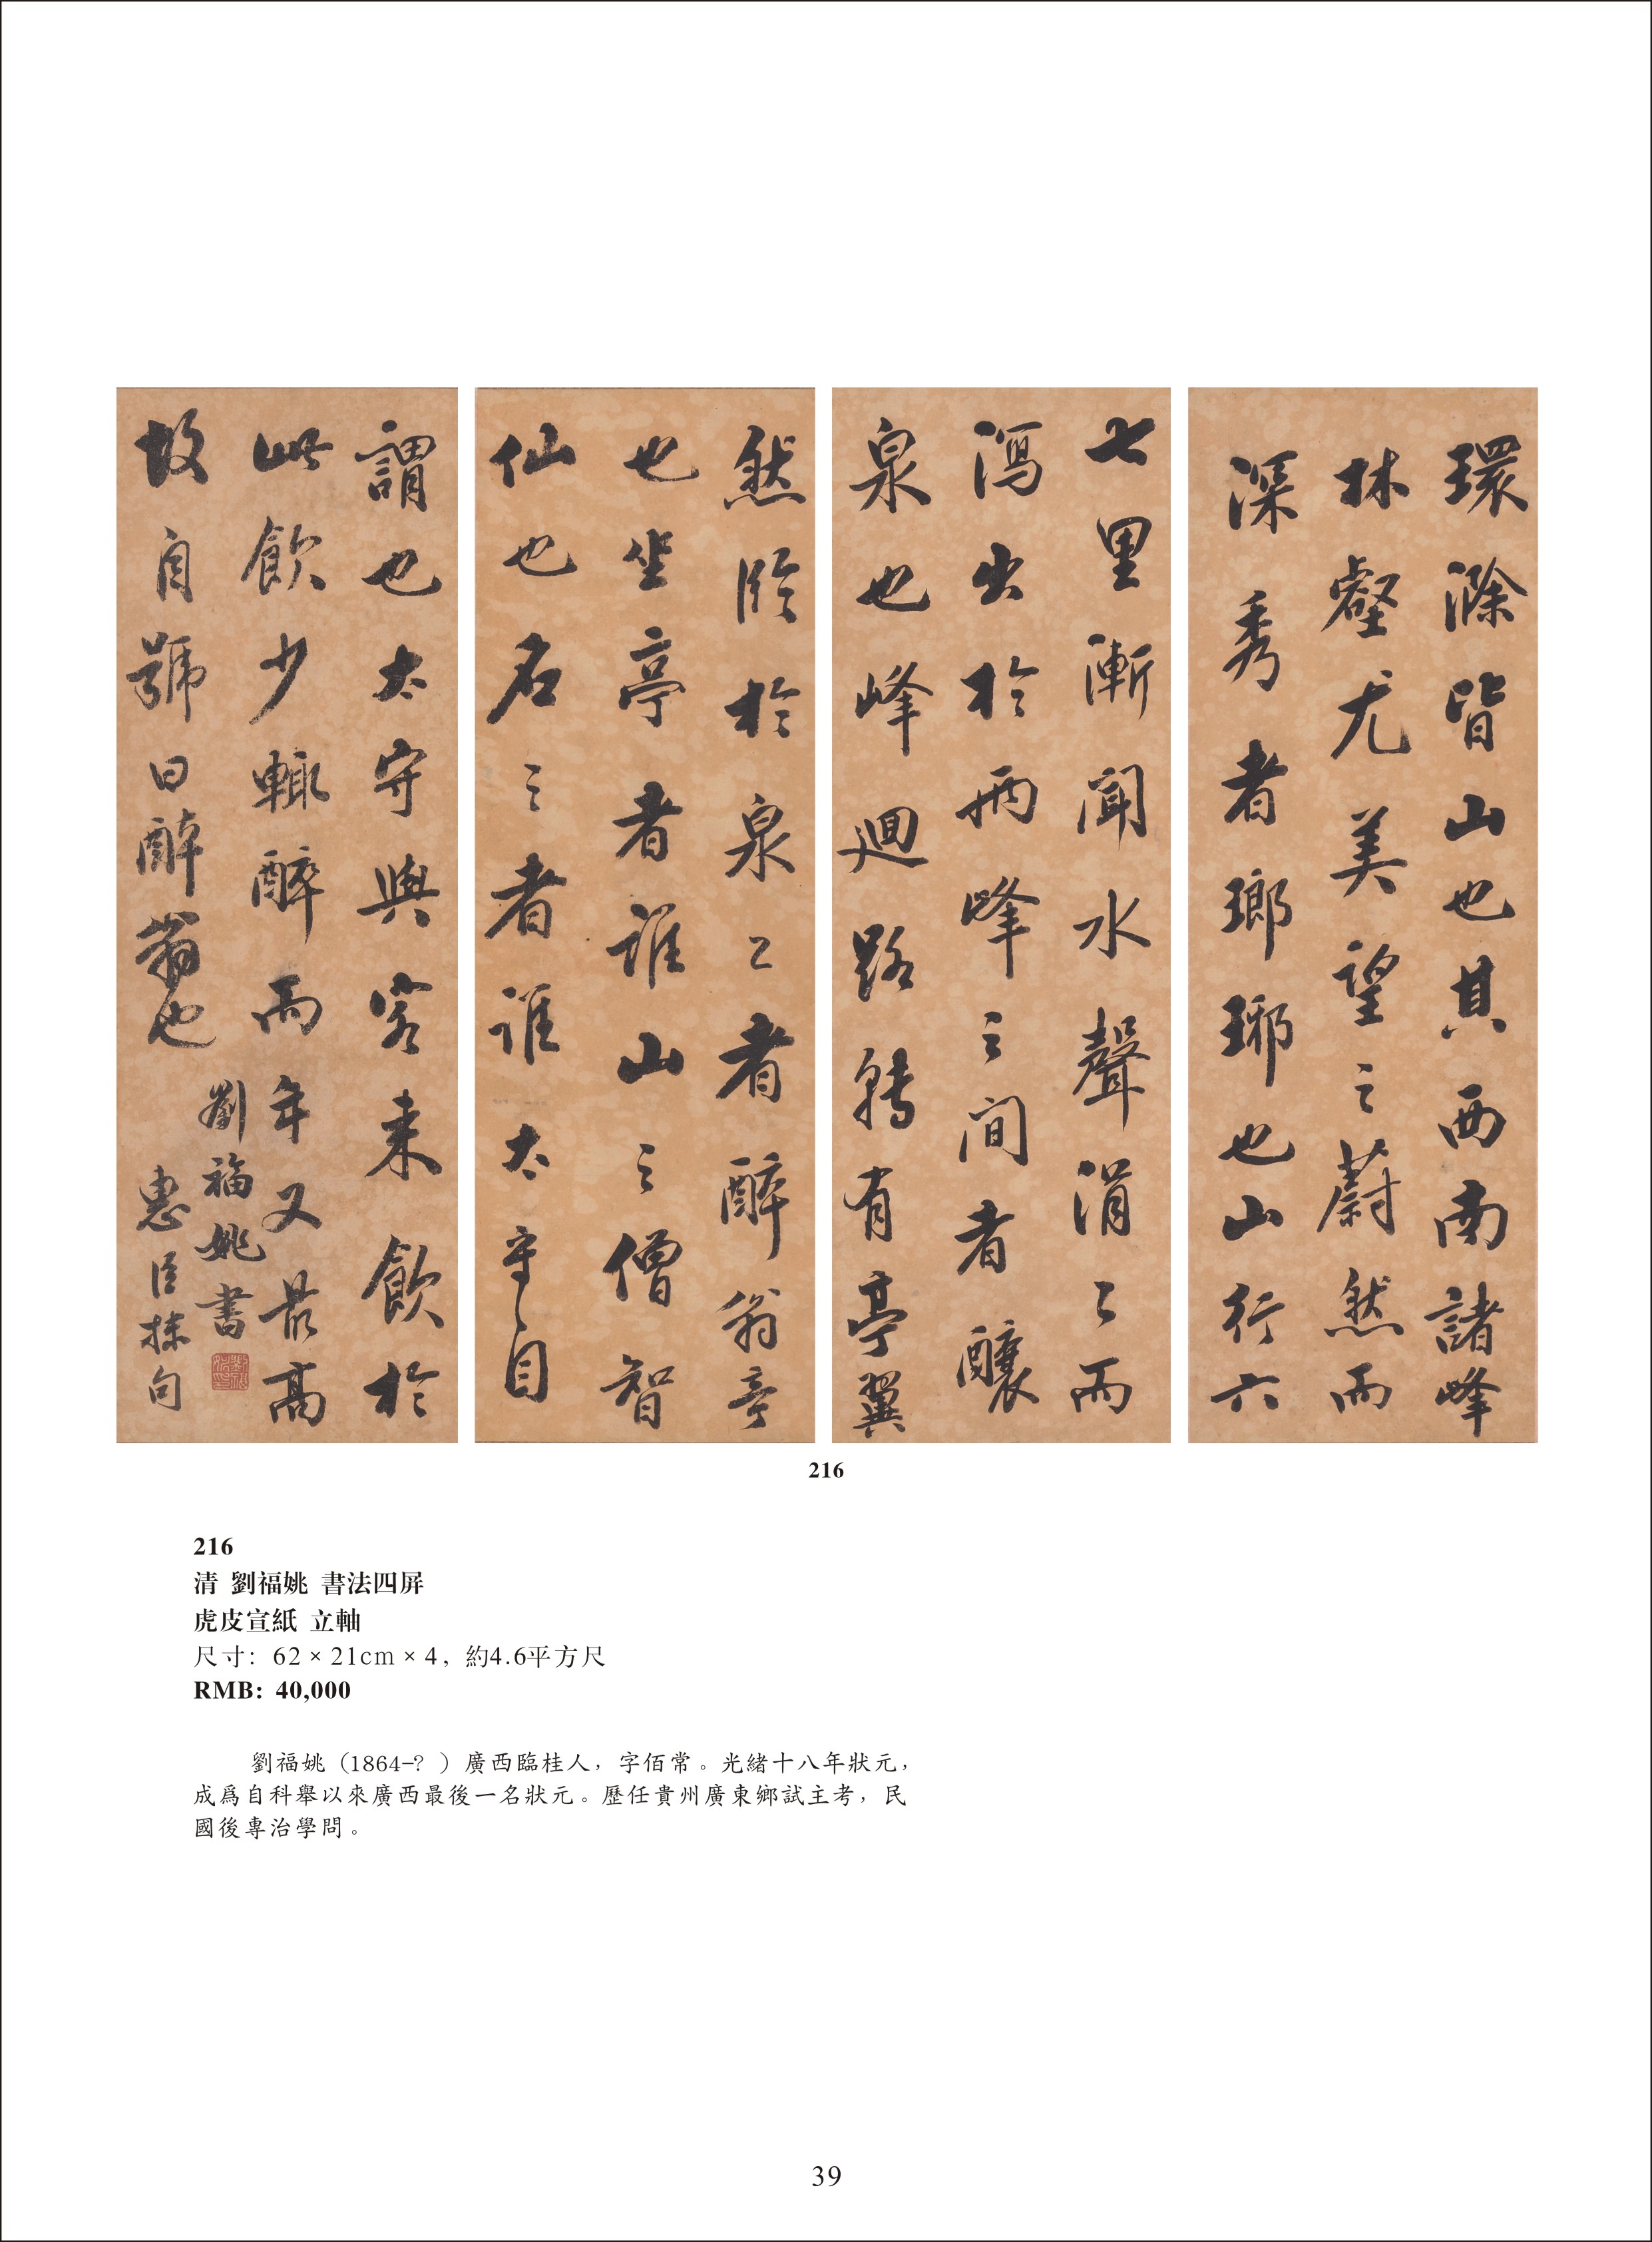 環滁皆山也其西南諸峰
林壑尤美望之蔚然而
深秀者瑯琊也山行六
七里漸聞水聲涓〻而
瀉出於兩峰之間者釀
泉也峰迴路轉有亭翼
然臨於泉〻者醉翁亭
也坐亭者誰山之僧智
仙也名之者誰太守〻自
謂也太守與客來飲於
此飲少輒醉而年又最高
故自號曰醉翁也
劉福姚書
惠臣句
216
216
清 劉福姚 書法四屏
虎皮宣紙 立軸
尺寸：62×21cm×4，約4.6平方尺
RMB: 40,000
劉福姚（1864-？）廣西臨桂人，字佰常。光緒十八年狀元，
成爲自科舉以來廣西最後一名狀元。歷任貴州廣東鄉試主考，民
國後專治學問。
39